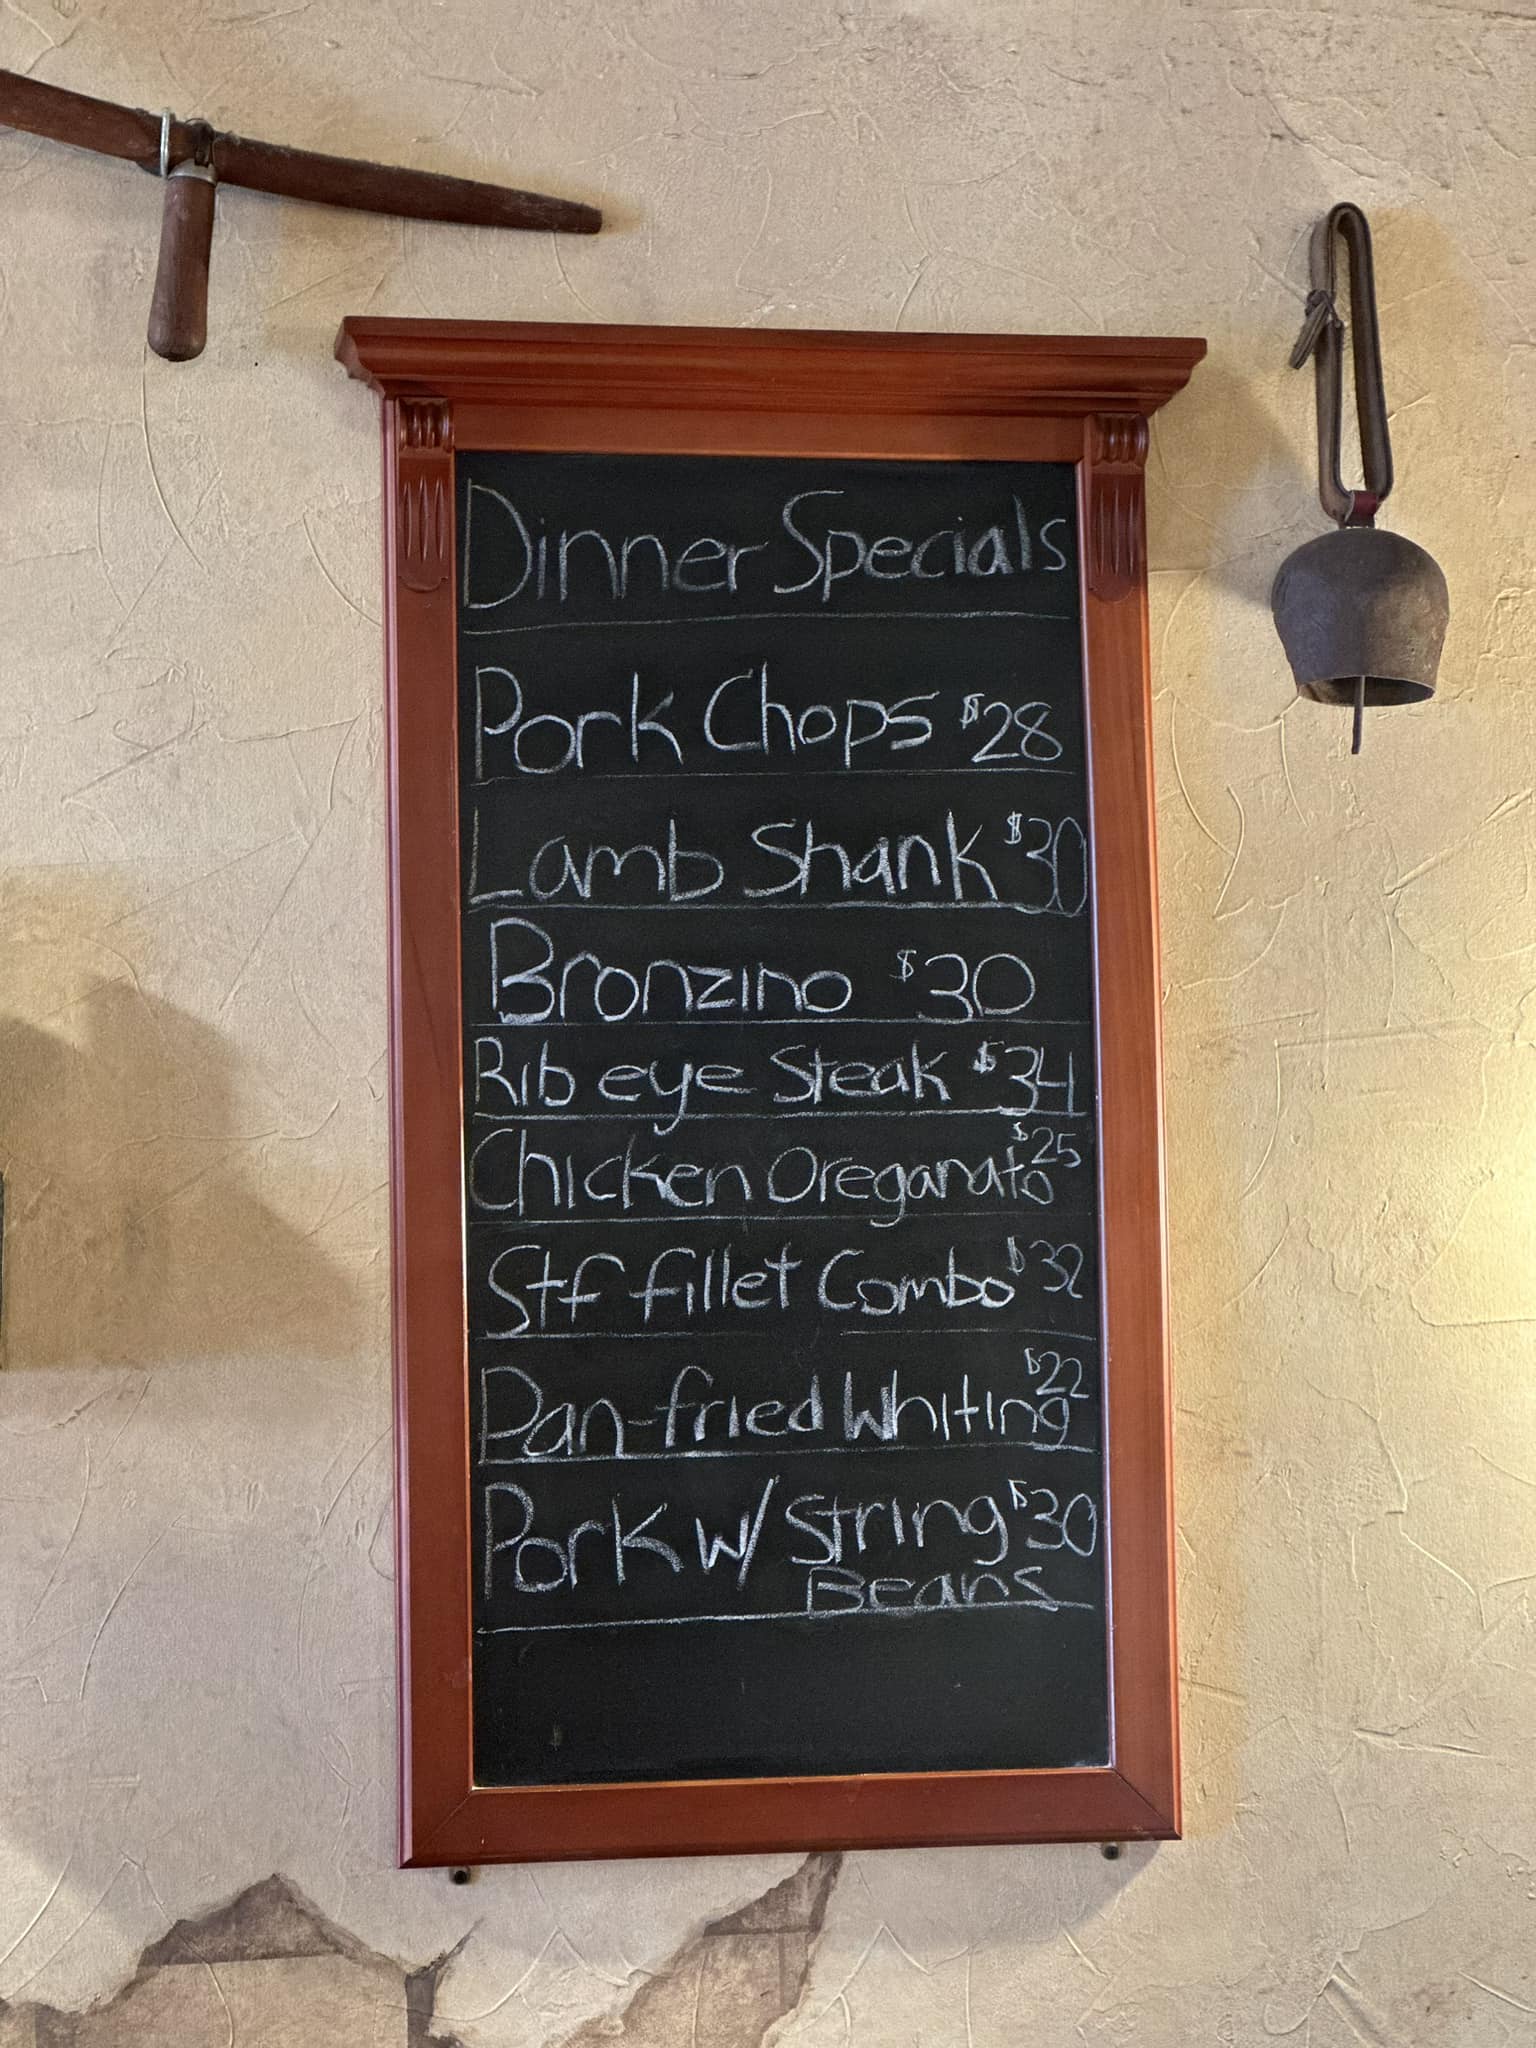 Dinner Specials
Pork Chops $28
Lamb Shank $30
Bronzino $30
Rib eye Steak $34
Chicken Oreganato $25
Stf fillet Combo $32
Pan-fried Whiting $22
Pork w/ String $30
Beans